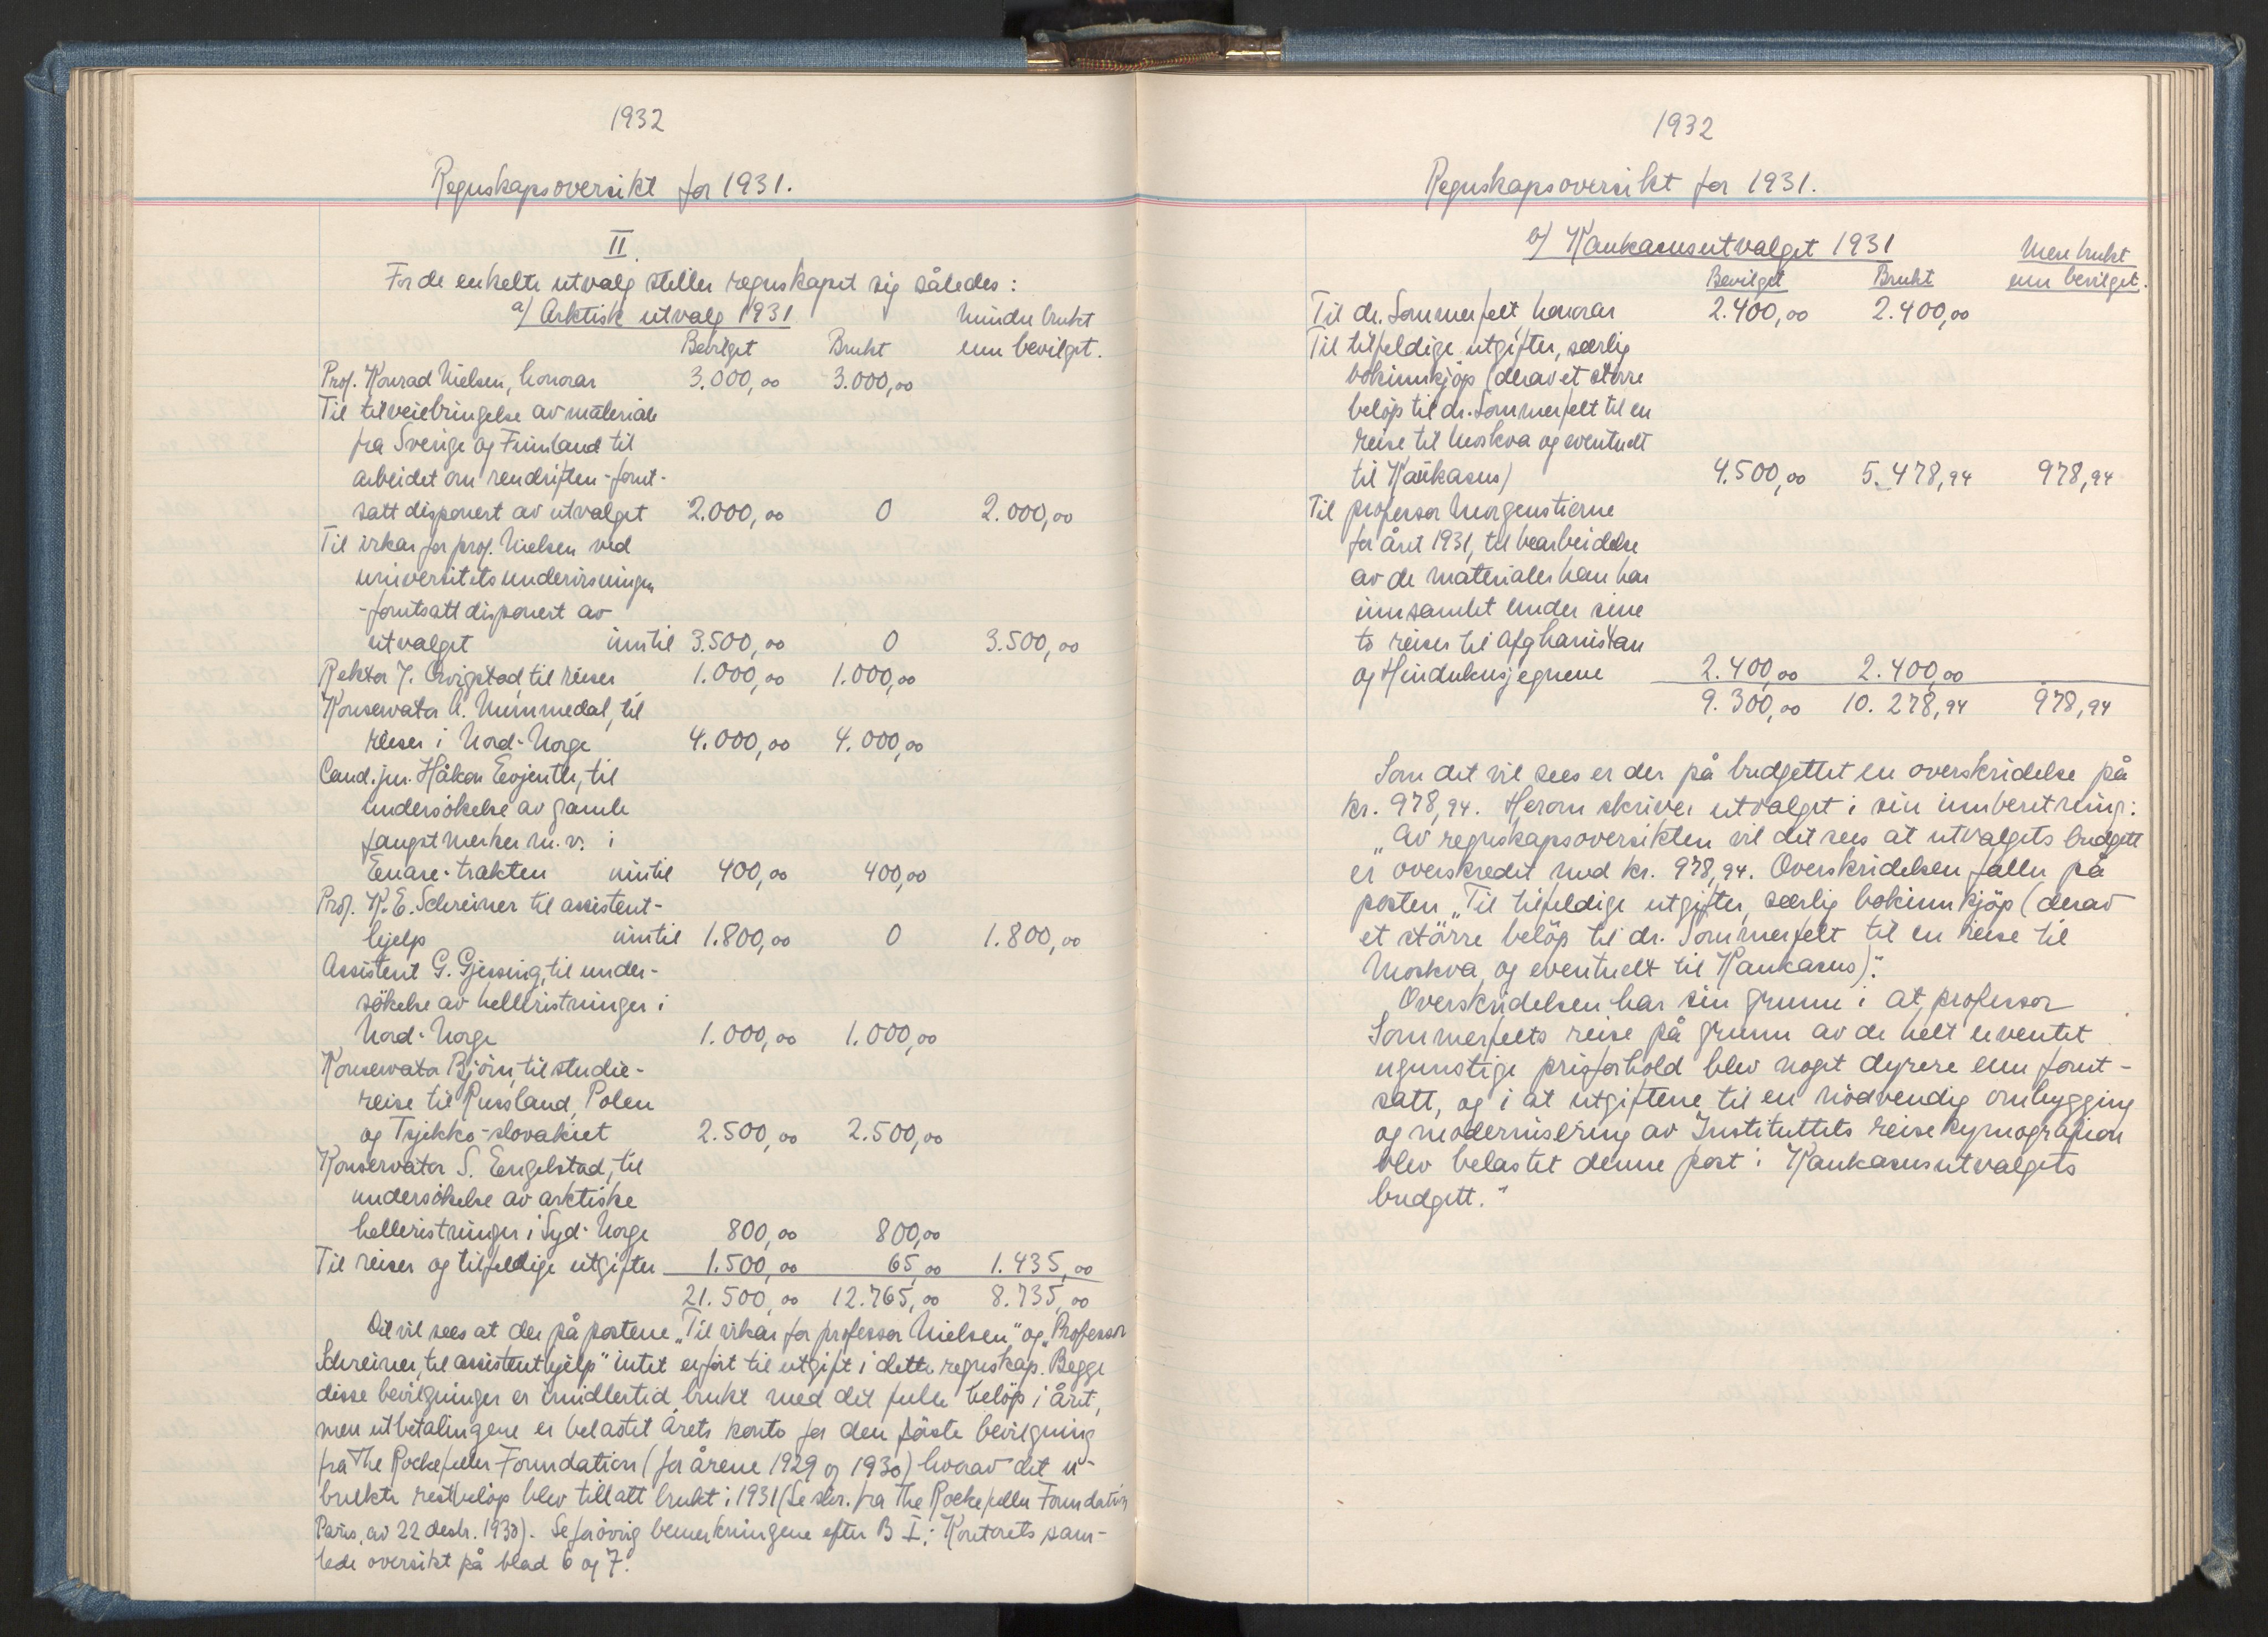 1932
Regnskapsoversikt for 1931.
II.
For de enkelte utvalg stiller regnskapet sig således:
a/ Arktisk utvalg 1931 Mindre brukt
Bevilget Brukt enn bevilget.
Prof. Konrad Nielsen, honorar 3.000,00 3.000,00
Til tilveiebringelse av materiale
fra Sverige og Finnland til
arbeidet om rendriften - forut-
satt disponert av utvalget 2.000,00 0 2.000,00
Til vikar for prof. Nielsen ved
universitetsundervisningen
- forutsatt disponert av
utvalget inntil 3.500,00 0 3.500,00
Rektor J. Qvigstad, til reiser 1.000,00 1.000,00
Konservator A. Nummedal, til
reiser i Nord-Norge 4.000,00 4.000,00
Cand. jur. Håkon Evjenth, til
undersökelse av gamle
fangstmerker m. v. i
Enare-trakten inntil 400,00 400,00
Prof. K. E. Schreiner til assistent-
hjelp inntil 1.800,00 0 1.800,00
Assistent G. Gjessing, til under-
sökelse av helleristninger i
Nord-Norge 1.000,00 1.000,00
Konservator Björn, til studie-
reise til Russland, Polen
og Tsjekko-slovakiet 2.500,00 2.500,00
Konservator S. Engelstad, til
undersökelse av arktiske
helleristninger i Syd-Norge 800,00 800,00
Til reiser og tilfeldige utgifter 1.500,00 65,00 1.435,00
21.500,00 12.765,00 8.735,00
Det vil sees at der på postene „Til vikar for professor Nielsen" og „Professor
Schreiner, til assistenthjelp" intet er fört til utgift i dette regnskap. Begge
disse bevilgninger er imidlertid brukt med det fulle belöp i året,
men utbetalingene er belastet årets konto for den förste bevilgning
fra The Rockefeller Foundation (for årene 1929 og 1930) hvorav det u-
brukte restbelöp blev tillatt brukt i 1931 (Se skr. fra The Rockefeller Foundation
Paris, av 22 desbr. 1930). Se forövrig bemerkningene efter B I: Kontorets sam-
lede oversikt på blad 6 og 7.
1932
Regnskapsoversikt for 1931.
b/ Kaukasusutvalget 1931 Mere brukt
Bevilget Brukt enn bevilget.
Til dr. Sommerfelt, honorar 2.400,00 2.400,00
Til tilfeldige utgifter, særlig
bokinnkjöp (derav et större
belöp til dr. Sommerfelt til en
reise til Moskva og eventuelt
til Kaukasus) 4.500,00 5.478,94 978,94
Til professor Morgenstierne
for året 1931, til bearbeidelse
av de materialer han har
innsamlet under sine
to reiser til Afghanistan
og Hindukusjegnene 2.400,00 2.400,00
9.300,00 10.278,94 978,94
Som det vil sees er der på budgettet en overskridelse på
kr. 978,94. Herom skriver utvalget i sin innberetning:
„Av regnskapsoversikten vil det sees at utvalgets budgett
er overskredet med kr. 978,94. Overskridelsen faller på
posten „Til tilfeldige utgifter, særlig bokinnkjöp (derav
et större belöp til dr. Sommerfelt til en reise til
Moskva, og eventuelt til Kaukasus)."
Overskridelsen har sin grunn i at professor
Sommerfelts reise på grunn av de helt uventet
ugunstige prisforhold blev noget dyrere enn forut-
satt, og i at utgiftene til en nödvendig ombygging
og modernisering av Instituttets reisekymografion
blev belastet denne post i Kaukasusutvalgets
budgett."